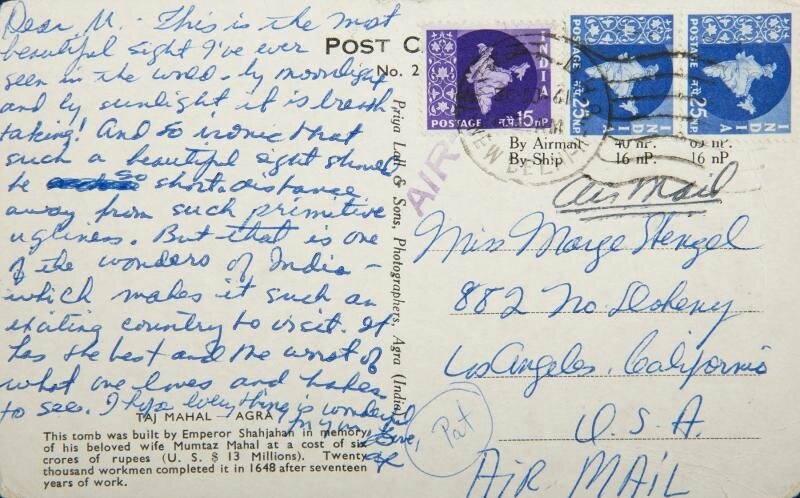 Dear M. This is the most
beautiful sight I've ever
seen in the world - by moonlight
and by sunlight it is breath
taking! And so ironic that
such a beautiful sight should
be so short a distance
away from such primitive
ugliness. But that is one
of the wonders of India -
which makes it such an
exciting country to visit. It
has the best and the worst of
what one loves and hates
to see. I hope everything is wonderful
for you. Love,
TAJ MAHAL — AGRA
This tomb was built by Emperor Shahjahan in memory
of his beloved wife Mumtaz Mahal at a cost of six
crores of rupees (U. S. $ 13 Millions). Twenty
thousand workmen completed it in 1648 after seventeen
years of work.
Pat
POST C
No. 2
Priya Lall & Sons, Photographers, Agra (India)
INDIA
POSTAGE न.पै. 15 nP
POSTAGE न.पै. 25 NP
INDIA
POSTAGE न.पै. 25 NP
INDIA
NEW DELHI
By Airmail 40 nP. 65 nP.
By Ship 16 nP. 16 nP
AIR
Air Mail
Miss Marge Stengel
882 No. Doheny
Los Angeles, California
U. S. A.
AIR MAIL